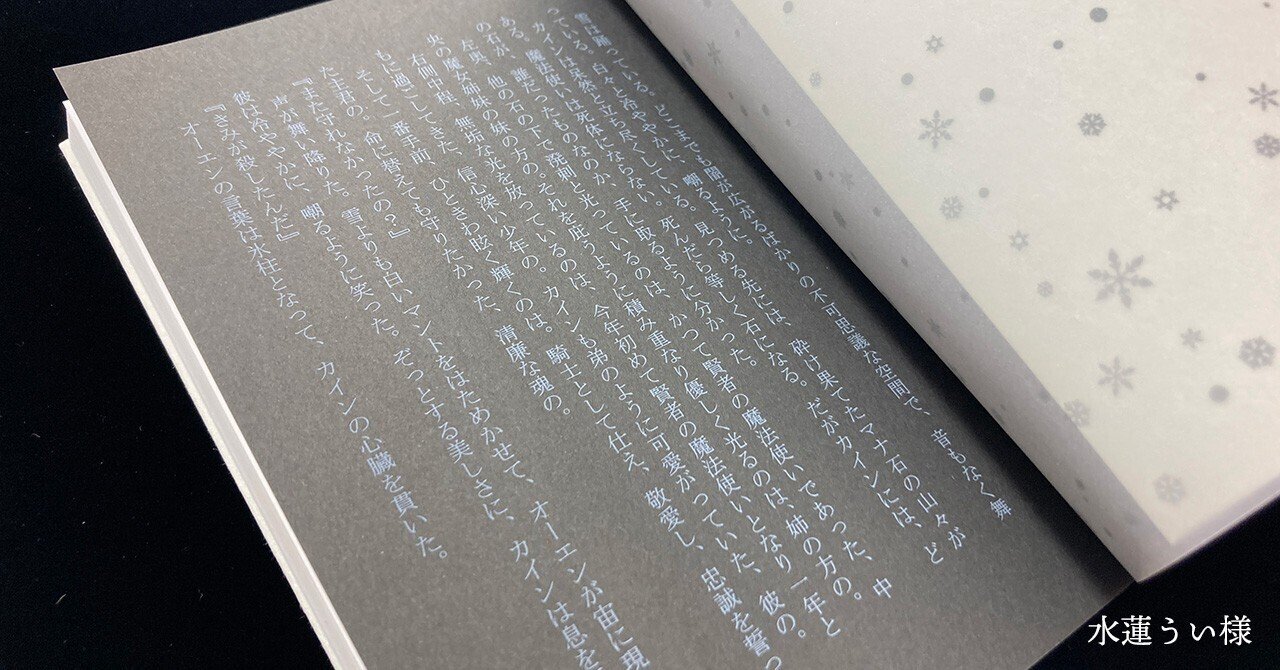 雪は踊っている。どこまでも闇が広がるばかりの不可思議な空間で、音もなく舞
っている。白々と冷ややかに。嘲るように。
カインは呆然と立ち尽くしている。見つめる先には、砕け果てたマナ石の山々が
ある。魔法使いは死体にならない。死んだら等しく石になる。だがカインには、ど
の石が、誰だったものなのか、手に取るように分かった。
左奥、他の石の下で溌剌と光っているのは、かつて賢者の魔法使いであった、中
央の魔女姉妹の妹の方の。それを庇うように積み重なり優しく光るのは、姉の方の。
右側中程、無垢な光を放っているのは、今年初めて賢者の魔法使いとなり一年と
もに過ごしてきた、信心深い少年の。カインも弟のように可愛がっていた、彼の。
そして一番手前、ひときわ眩く輝くのは。騎士として仕え、敬愛し、忠誠を誓っ
た主君の。命に替えても守りたかった、清廉な魂の。
『また守れなかったの？』
声が舞い降りた。雪よりも白いマントをはためかせて、オーエンが宙に現
彼は冷ややかに、嘲るように笑った。ぞっとする美しさに、カインは息を
『きみが殺したんだ』
オーエンの言葉は氷柱となって、カインの心臓を貫いた。
水蓮うぃ様